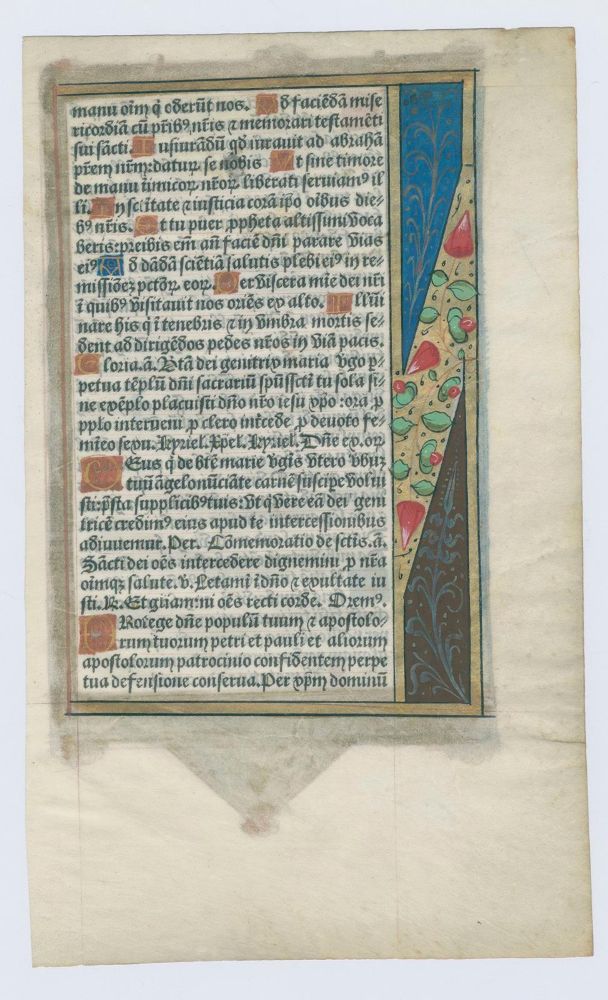 manu oīm q̄ oderūt nos. Ad faciēdā mise
ricordiā cū prib⁹ nr̄is ⁊ memorari testamēti
sui sācti. Iusiurādū qđ iurauit ad abrahā
prēm nrm̄: daturꝝ se nobis Ut sine timore
de manu inimicoꝝ nr̄oꝝ liberati seruiam⁹ il
li. In scītate ⁊ iusticia corā ip̄o oībus die-
b⁹ nr̄is. Et tu puer ꝓpheta altissimi voca
beris: preibis em̄ an̄ faciē dn̄i parare vias
ei⁹ Ad dādā sciētiā salutis plebi ei⁹ in re-
missiōeꝫ pctōꝝ eoꝝ. Per viscera mīe dei nr̄i
ī quib⁹ visitauit nos oriēs ex alto. Illūi
nare his q̄ ī tenebris ⁊ in vmbra mortis se-
dent ad dirigēdos pedes nr̄os in viā pacis.
Gloria. ā. Btā dei genitrix maria vgo ꝑ-
petua tēplū dn̄i sacrariū spūssctī tu sola si-
ne exēplo placuisti dn̄o nr̄o iesu xp̄o: ora ꝓ
pplo interueni ꝓ clero int̄cede ꝓ deuoto fe-
mīeo sexu. Kyriel. Xpel. Kyriel. Dn̄e ex. or
Deus q̄ de btē marie vgīs vtero vbū
tuū āgelo nūciāte carnē suscipe volui
sti: p̄sta supplicib⁹ tuis: vt q̄ vere eā dei geni
tricē credim⁹ eius apud te intercessionibus
adiuuemur. Per. Cōmemoratio de sctīs. ā.
Sācti dei oēs intercedere dignemini ꝓ nr̄a
oīmqꝫ salute. v̄. Letamī ī dn̄o ⁊ exultate iu
sti. R̄. Et gl̄iamini oēs recti corde. Orem⁹.
Protege dn̄e populū tuum ⁊ apostolo-
rum tuorum petri et pauli et aliorum
apostolorum patrocinio confidentem perpe
tua defensione conserua. Per xp̄m dominū